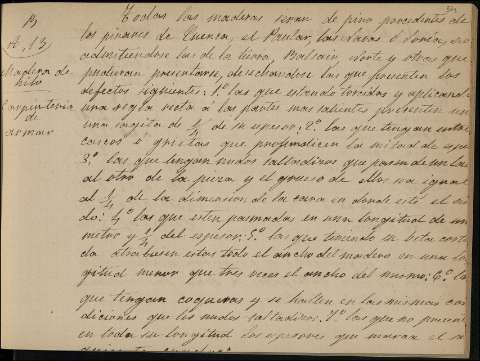 B
A, 13
Madera de
hilo
Carpintería
de
armar
Todas las maderas serán de pino procedentes de
los pinares de Cuenca, el Paular, las Navas ó Soria, no
admitiéndose las de la tierra, Balsain, Norte y otras que
pudieran presentarse, desechandose las que presenten los
defectos siguientes: 1º las que estando torcidas y aplicando
una regla recta á las partes mas salientes presenten en
una sagita de 1/4 de su espesor; 2º las que tengan
ó grietas que profundicen la mitad de
3º las que tengan nudos saltadizos que pasen de un lado
al otro de la pieza y el grueso de ellos sea igual
al 1/4 de la dimension de la cara en donde esté el nu
do: 4º las que esten pasmadas en una longitud de un
metro y 1/4 del espesor; 5º las que teniendo su beta corta
da atraviesen estas todo el ancho del madero en una lon
gitud menor que tres veces el ancho del mismo; 6º las
que tengan coqueras y se hallen en las mismas con
diciones que los nudos saltadizos. 7º las que no presenten
en toda su longitud los espesores que marca el